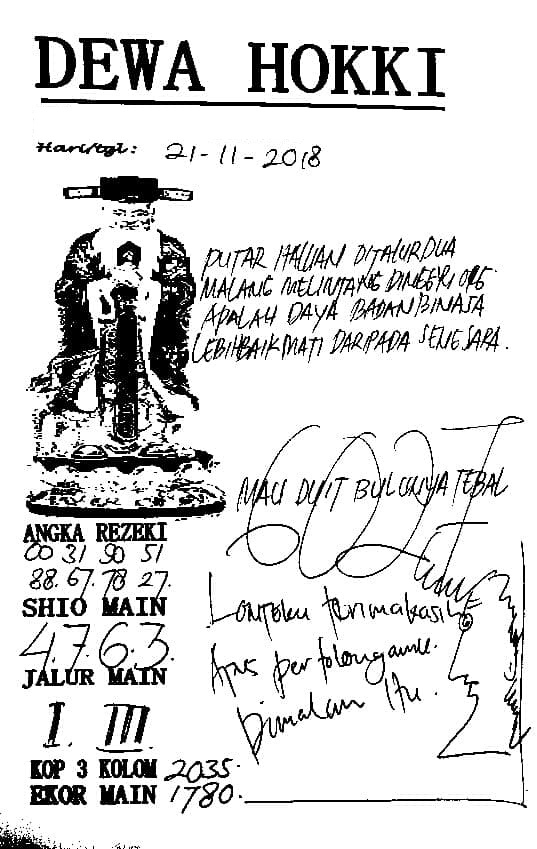 DEWA HOKKI
Hari/tgl: 21-11-2018
PUTAR HALUAN DITALURDUA
MALANG MELINTANG DINEGRI ORG.
APALAH DAYA BADAN BINASA
LEBIHBAIK MATI DARIPADA SENGSARA.
MAU DUIT BULUNYA TEBAL
ANGKA REZEKI
00 31 90 51
88. 67. 78 27.
SHIO MAIN
4.7.6.3.
JALUR MAIN
I. III
KOP 3 KOLOM 2035.
EKOR MAIN 1780.
terimakasih
Atas pertolonganmu
Dimalam Itu.